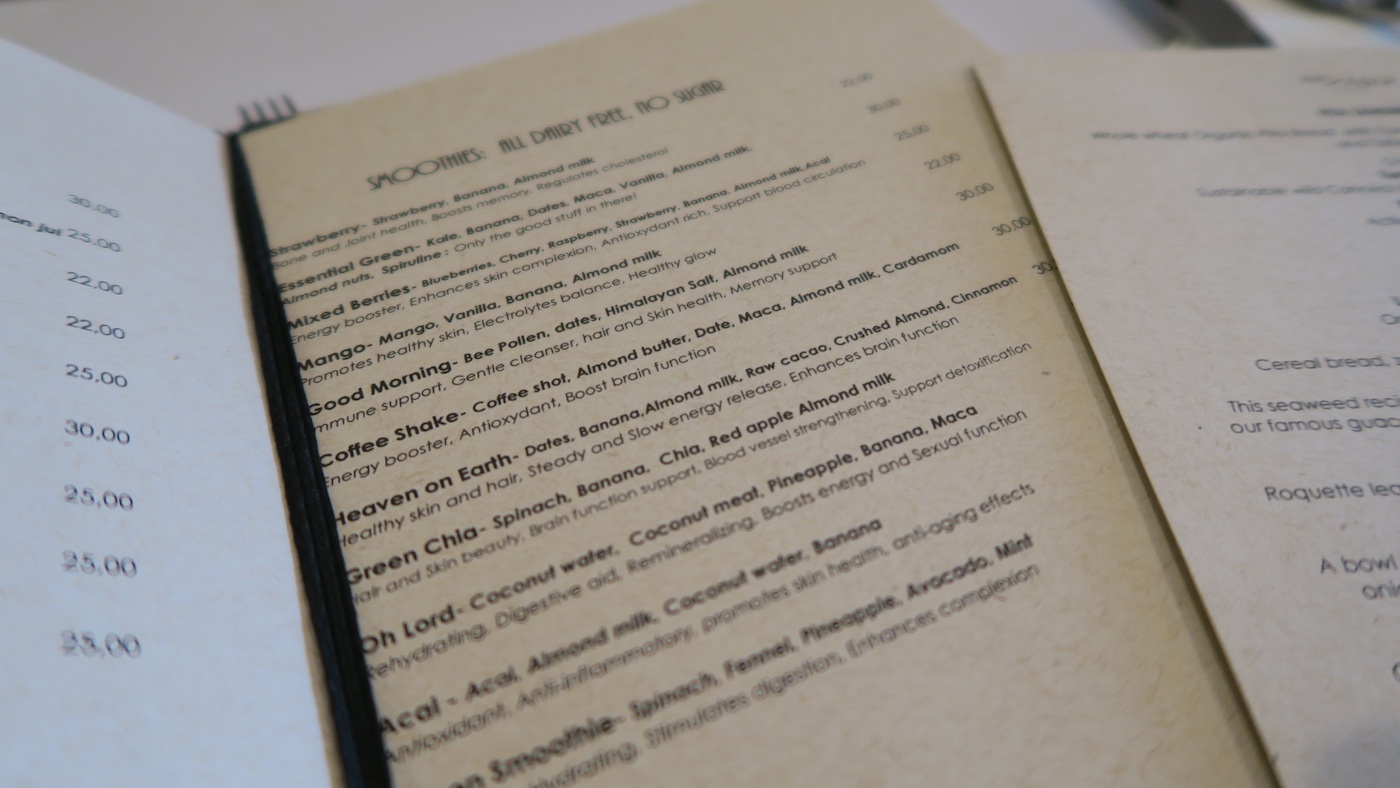 30,00
25,00
22,00
22,00
25,00
30,00
25,00
25,00
25,00
SMOOTHIES: ALL DAIRY FREE, NO SUGAR
Strawberry- Strawberry, Banana, Almond milk 22,00
Bone and Joint health, Boosts memory, Regulates cholesterol
Essential Green- Kale, Banana, Dates, Maca, Vanilla, Almond milk, 30,00
Almond nuts, Spiruline : Only the good stuff in there!
Mixed Berries- Blueberries, Cherry, Raspberry, Strawberry, Banana, Almond milk,Acai 25,00
Energy booster, Enhances skin complexion, Antioxydant rich, Support blood circulation
Mango- Mango, Vanilla, Banana, Almond milk 22,00
Promotes healthy skin, Electrolytes balance, Healthy glow
Good Morning- Bee Pollen, dates, Himalayan Salt, Almond milk 30,00
mmune support, Gentle cleanser, hair and Skin health, Memory support
Coffee Shake- Coffee shot, Almond butter, Date, Maca, Almond milk, Cardamom 30,00
Energy booster, Antioxydant, Boost brain function
Heaven on Earth- Dates, Banana,Almond milk, Raw cacao, Crushed Almond, Cinnamon 30
Healthy skin and hair, Steady and Slow energy release, Enhances brain function
Green Chia- Spinach, Banana, Chia, Red apple Almond milk
Hair and Skin beauty, Brain function support, Blood vessel strengthening, Support detoxification
Oh Lord- Coconut water, Coconut meat, Pineapple, Banana, Maca
Rehydrating, Digestive aid, Remineralizing, Boosts energy and Sexual function
Acai - Acai, Almond milk, Coconut water, Banana
Antioxidant, Anti-inflammatory, promotes skin health, anti-aging effects
Smoothie- Spinach, Fennel, Pineapple, Avocado, Mint
hydrating, Stimulates digestion, Enhances complexion
Cereal bread,
This seaweed reci
our famous guac
Roquette lea
A bowl
oni